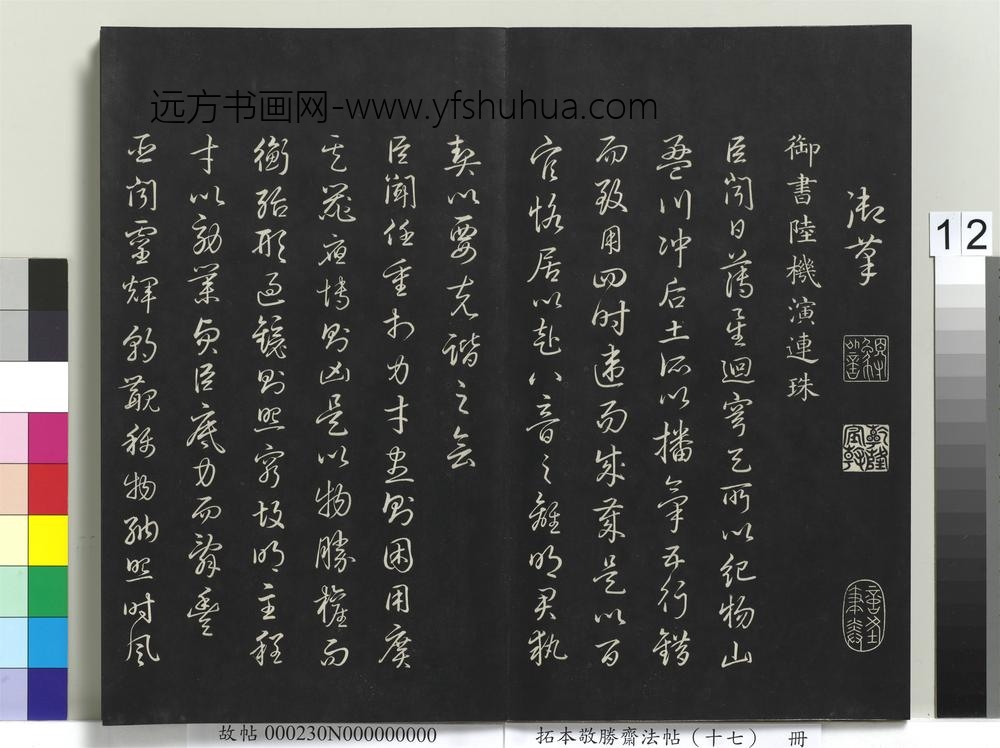 御筆
御書陸機演連珠
臣聞日薄星迴穹天所以紀物山
盈川沖后土所以播氣五行錯
而致用四時違而成歲是以百
官恪居以赴八音之離明君執
契以要克諧之會
臣聞任重於力才盡則困用廣
其器應博則凶是以物勝權而
衡殆形過鏡則照窮故明主程
才以効業貞臣底力而辭豐
臣聞靈輝朝覯稱物納照時風
远方书画网-www.yfshuhua.com
12
故帖 000230N000000000
拓本敬勝齋法帖（十七） 冊